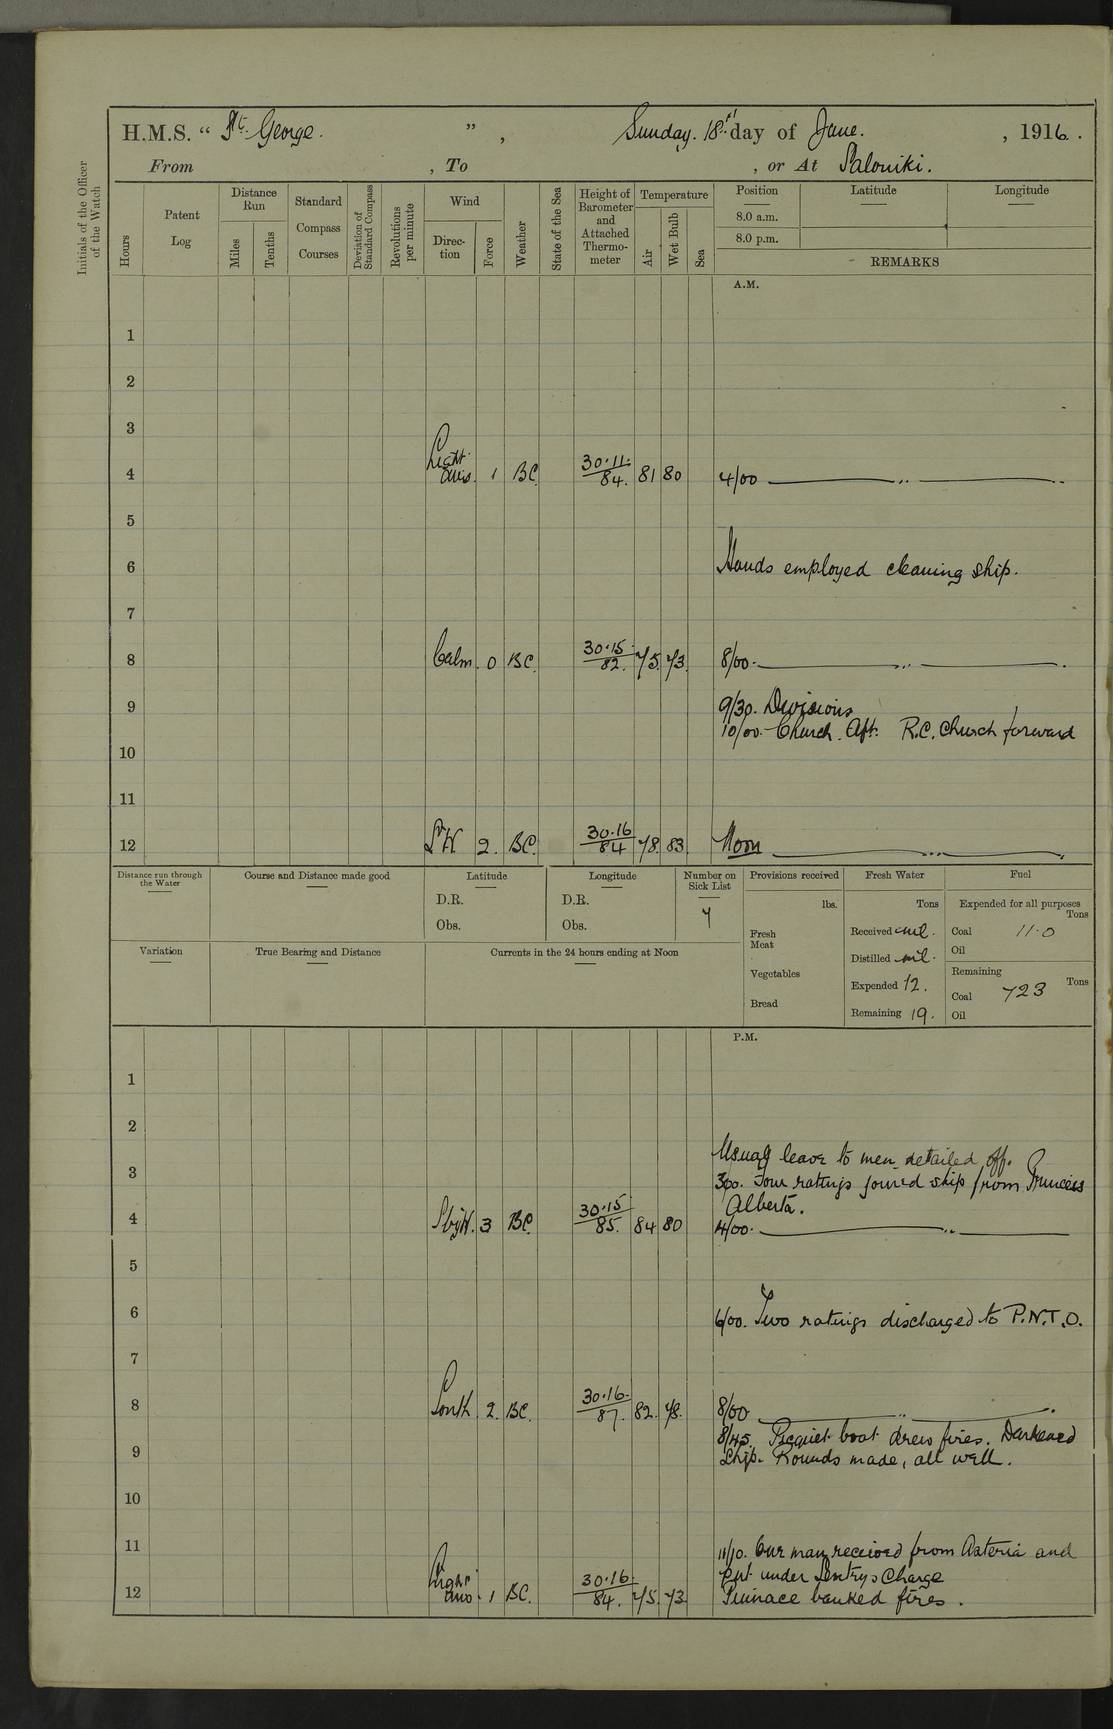 H.M.S. “ St. George. ” , Sunday. 18th day of June. , 1916.
From , To , or At Saloniki.
Initials of the Officer of the Watch
Hours
Patent Log
Distance Run
Miles
Tenths
Standard Compass Courses
Deviation of Standard Compass
Revolutions per minute
Wind
Direction
Force
Weather
State of the Sea
Height of Barometer and Attached Thermometer
Temperature
Air
Wet Bulb
Sea
Position Latitude Longitude
8.0 a.m.
8.0 p.m.
REMARKS
A.M.
1
2
3
4 Light airs. 1 BC. 30.11. 84. 81 80 4/00 ——— „ ———
5
6 Hands employed cleaning ship.
7
8 Calm. 0 BC. 30.15. 82. 75. 73. 8/00. ——— „ ———
9 9/30. Divisions
10/00. Church. Aft. R.C. Church forward
10
11
12 2. BC. 30.16 84 78. 83. Noon ——— „ ———
Distance run through the Water
Course and Distance made good
Latitude
D.R.
Obs.
Longitude
D.R.
Obs.
Number on Sick List
7
Provisions received
lbs.
Fresh Meat
Vegetables
Bread
Fresh Water
Tons
Received nil.
Distilled nil.
Expended 12.
Remaining 19.
Fuel
Expended for all purposes
Tons
Coal 11.0
Oil
Remaining
Tons
Coal 723
Oil
Variation
True Bearing and Distance
Currents in the 24 hours ending at Noon
P.M.
1
2
Usual leave to men detailed off.
3 3/00. Four ratings joined ship from Princess
Alberta.
4 SbyW. 3 BC. 30.15 85. 84 80 4/00. ——— „ ———
5
6 6/00. Two ratings discharged to P.N.T.O.
7
8 South 2. BC. 30.16. 87. 82. 78. 8/00 ——— „ ———
8/45. Picquet boat drew fires. Darkened
9 Ship. Rounds made, all well.
10
11 11/10. One man received from Asteria and
put under Sentry's Charge
12 Light airs. 1 BC. 30.16. 84. 75. 73 Pinnace banked fires.